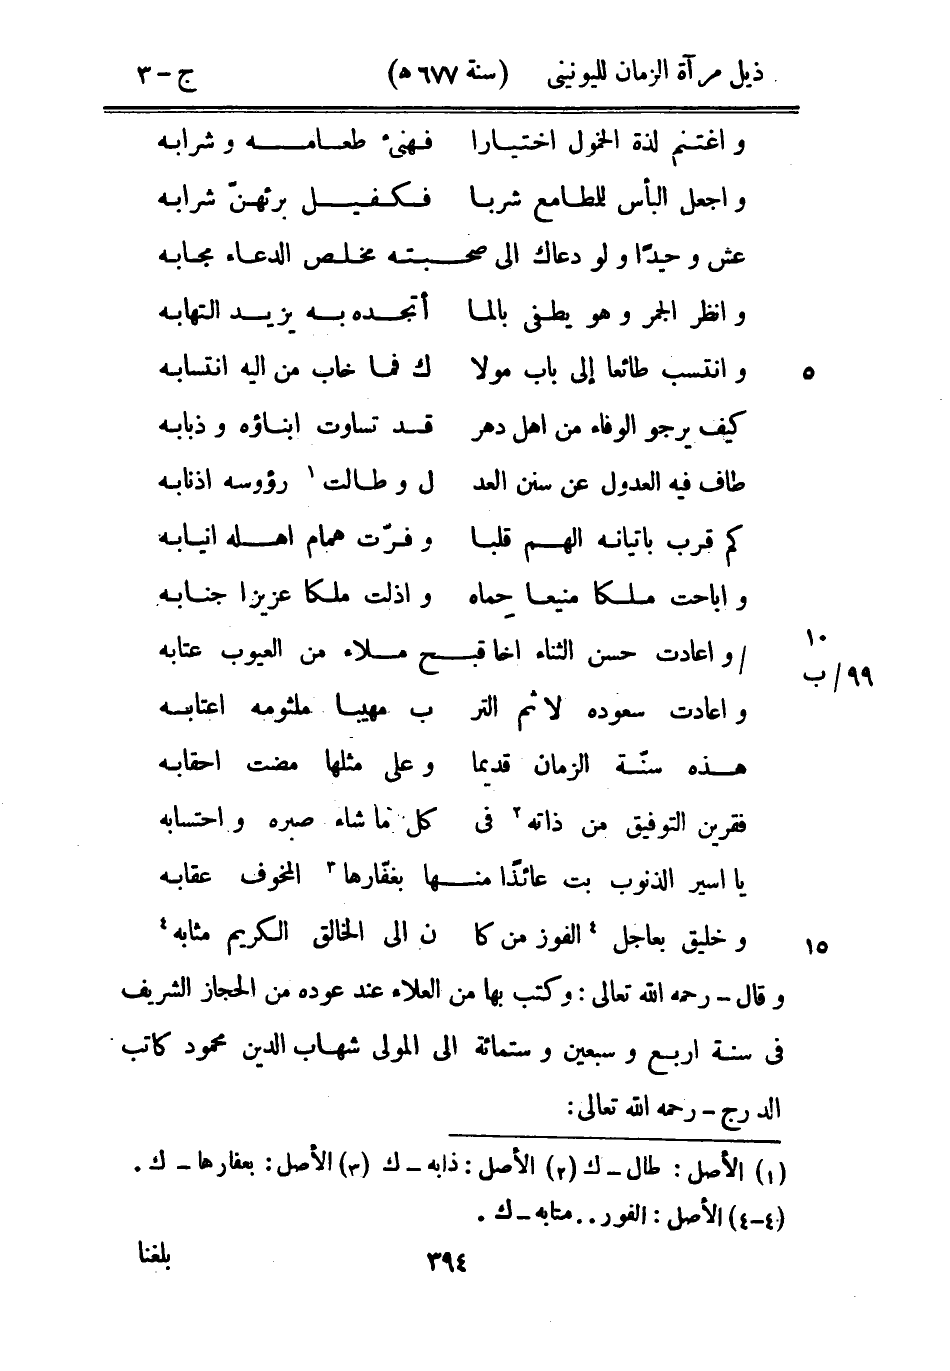 ذيل مرآة الزمان لليونينى (سنة ٦٧٧ ه) ج – ٣
و اغتنم لذة الخمول اختيارا فهنئ طعامه و شرابه
و اجعل البأس للطامع شربا فكفيل برئهنّ شرابه
عش وحيدًا و لو دعاك الى صحبته مخلص الدعاء مجابه
و انظر الجمر و هو يطفى بالما أتجده به يزيد التهابه
و انتسب طائعا إلى باب مولا ك فما خاب من اليه انتسابه ٥
كيف يرجو الوفاء من اهل دهر قد تساوت ابناؤه و ذبابه
طاف فيه العدول عن سنن العد ل و طالت ١ رؤوسه اذنابه
كم قرب باتيانه الهم قلبا و فرّت همام اهله انيابه
و اباحت ملكا منيعا حماه و اذلت ملكا عزيزا جنابه
/ و اعادت حسن الثناء اخا قبح ملاء من العيوب عتابه ١٠
٩٩/ ب
و اعادت سعوده لاثم التر ب مهيبا ملثومه اعتابه
هذه سنّة الزمان قديما و على مثلها مضت احقابه
فقرين التوفيق من ذاته ٢ فى كل ما شاء صبره و احتسابه
يا اسير الذنوب بت عائذًا منها بغفّارها ٣ المخوف عقابه
و خليق بعاجل ٤ الفوز من كا ن الى الخالق الكريم مثابه ٤ ١٥
و قال – رحمه الله تعالى : وكتب بها من العلاء عند عوده من الحجاز الشريف
فى سنة اربع و سبعين و ستمائة الى المولى شهاب الدين محمود كاتب
الدرج – رحمه الله تعالى :
(١) الأصل : طال – ك (٢) الأصل : ذابه – ك (٣) الأصل : بعفارها – ك .
(٤-٤) الأصل : الفور .. متابه – ك .
٣٩٤ بلغنا